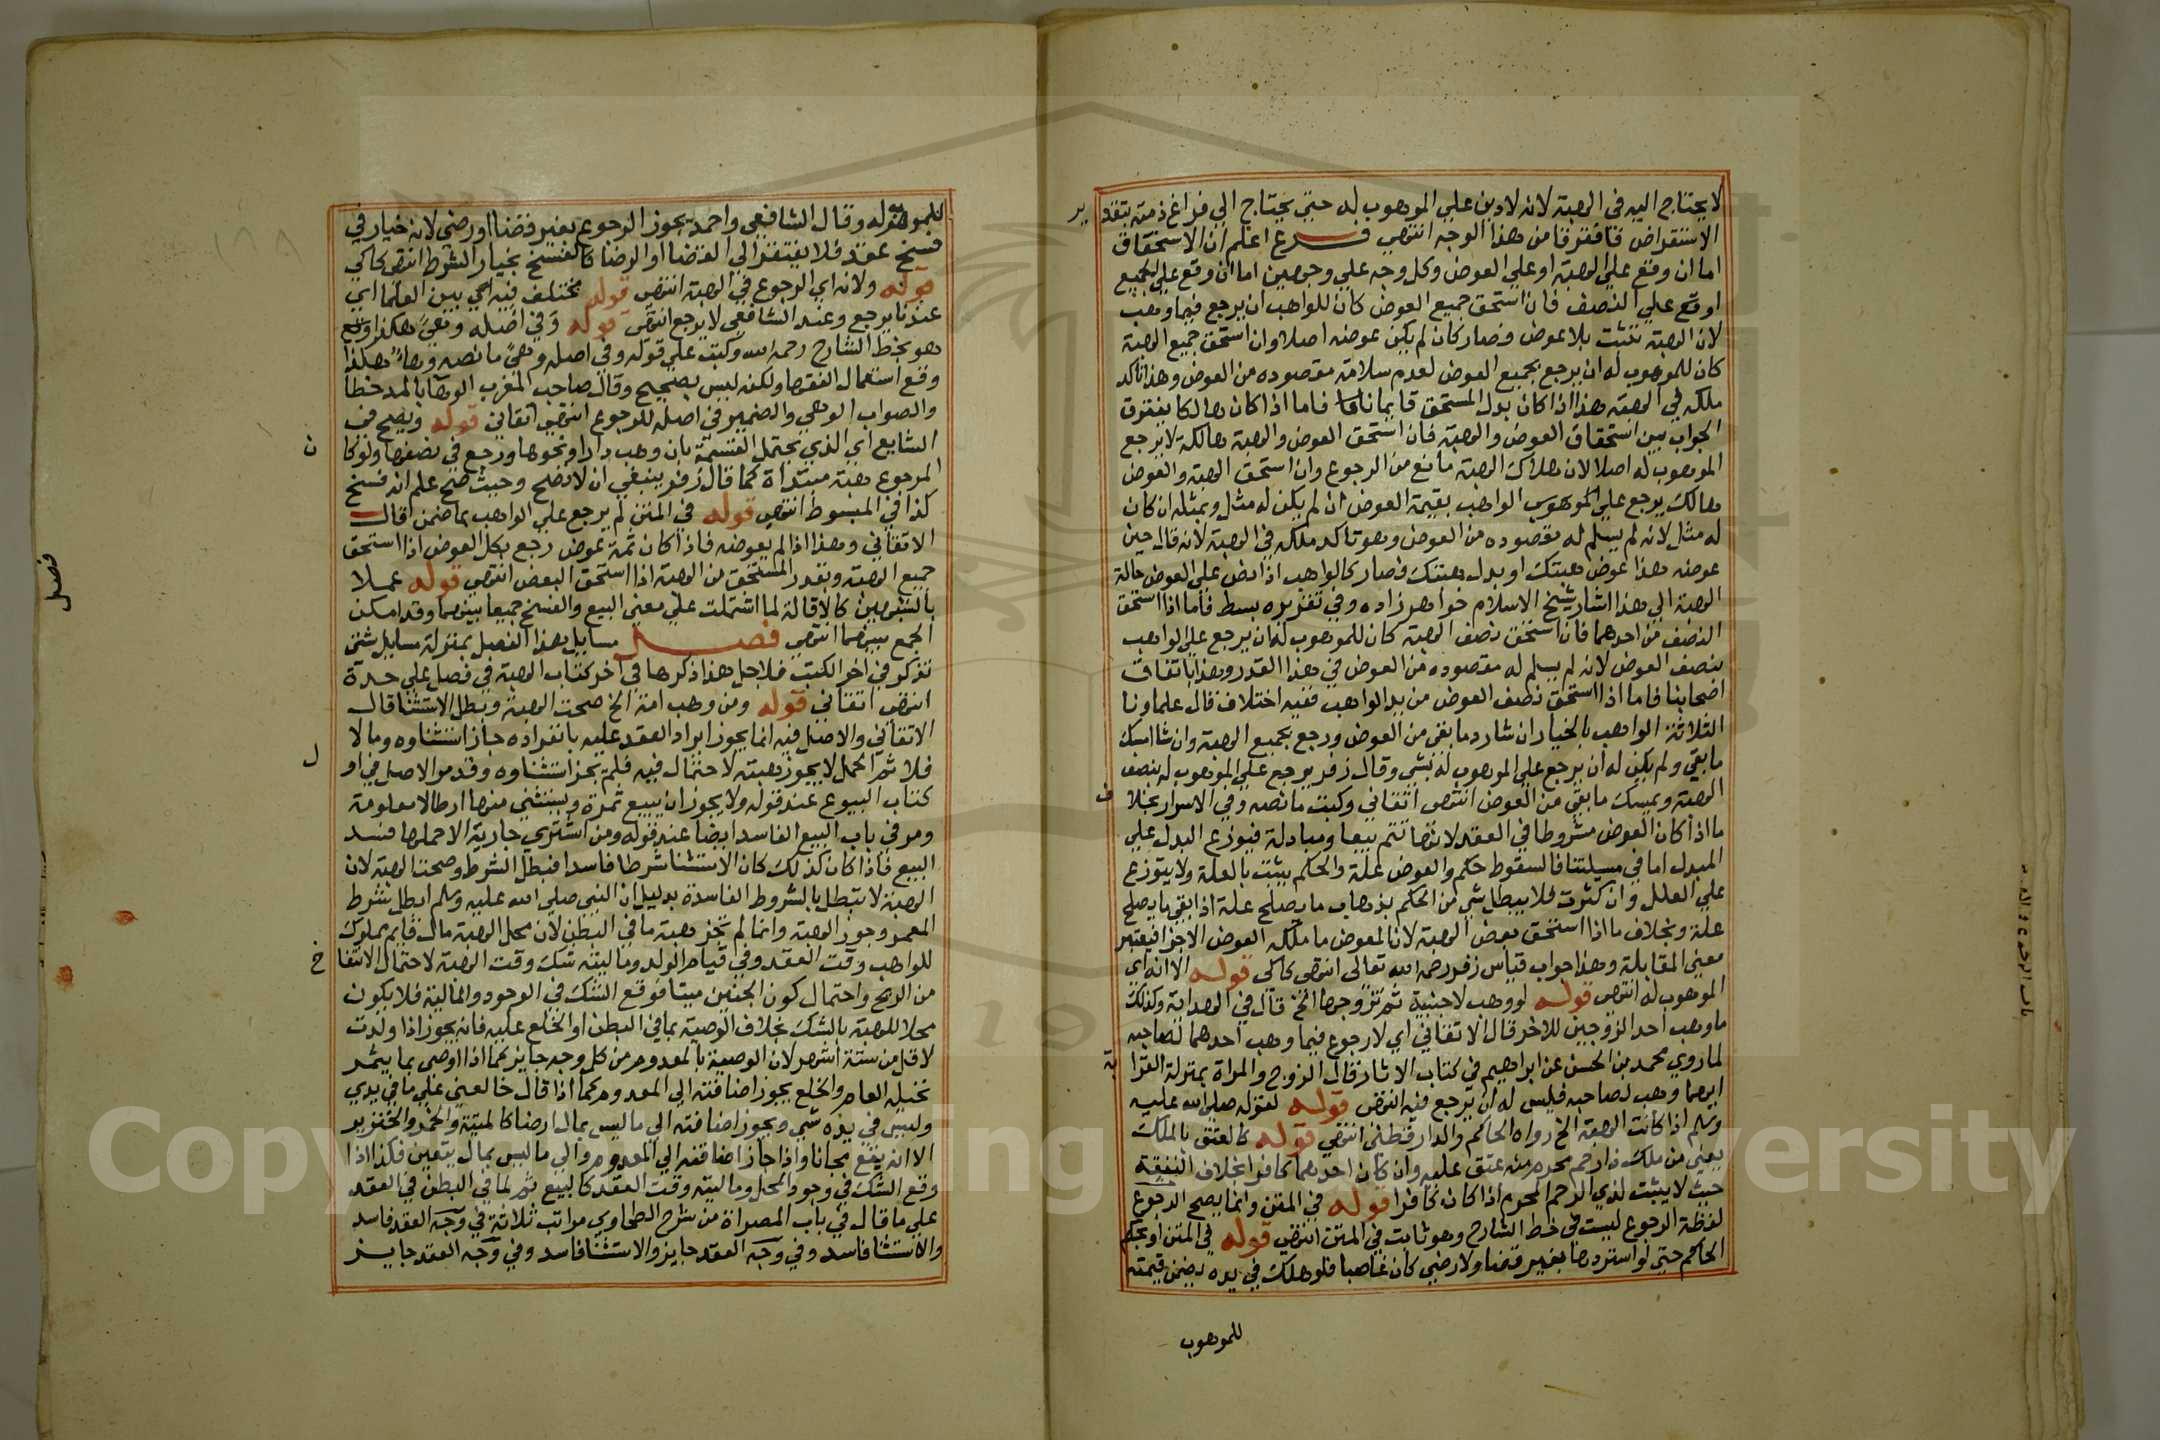 لا يحتاج اليه في الهبة لانه لا دين علي الموهوب له حتي يحتاج الي فراغ ذمته بتقد
ير
الاستقراض فافترقا من هذا الوجه انتهي فرع اعلم ان الاستحقاق
اما ان وقع علي الهبة او علي العوض وكل وجه علي وجهين اما ان وقع علي الجميع
او وقع علي النصف فان استحق جميع العوض كان للواهب ان يرجع فيما وهب
لان الهبة تثبت بلا عوض وصار كان لم يكن عوضه اصلا وان استحق جميع الهبة
كان للموهوب له ان يرجع بجميع العوض لعدم سلامة مقصوده من العوض وهذا تاكد
ملكه في الهبة هذا اذا كان بدل المستحق قايما فاما اذا كان هالكا يفترق
الجواب بين استحقاق العوض والهبة فان استحق العوض والهبة هالكة لا يرجع
الموهوب له اصلا لان هلاك الهبة مانع من الرجوع وان استحق الهبة والعوض
هالك يرجع علي الواهب بقيمة العوض ان لم يكن له مثل وبمثله ان كان
له مثل لانه لم يسلم له مقصوده من العوض وهو تاكد ملكه في الهبة لانه قال حين
عوضه هذا عوض هبتك او بدل هبتك وصار كالواهب اذا نص علي العوض حالة
الهبة الي هذا اشار شيخ الاسلام خواهر زاده وفي تقريره بسط فاما اذا استحق
النصف من احدهما فان استحق نصف الهبة كان للموهوب له ان يرجع علي الواهب
بنصف العوض لانه لم يسلم له مقصوده من العوض في هذا القدر وهذا باتفاق
اصحابنا فاما اذا استحق نصف العوض من يد الواهب ففيه اختلاف قال علماونا
الثلاثة الواهب بالخيار ان شا رد ما بقي من العوض ورجع بجميع الهبة وان شا امسك
ما بقي ولم يكن له ان يرجع علي الموهوب له بشي وقال زفر يرجع علي الموهوب له بنصف
الهبة ويمسك ما بقي من العوض انتهي اتقاني وكتب ما نصه وفي الاسرار بخلا
ف
ما اذا كان العوض مشروطا في العقد لانها تتم بيعا ومبادلة فيوزع البدل علي
المبدل اما في مسيلتنا فالسقوط حكم والعوض علة والحكم يثبت بالعلة ولا يتوزع
علي العلل وان كثرت فلا يبطل شي من الحكم بذهاب ما يصلح علة اذا بقي ما يصلح
علة وبخلاف ما اذا استحق بعض الهبة لان المعوض ما ملكه العوض الا جزا فيعتبر
معني المقابلة وهذا جواب قياس زفر رضي الله تعالي انتهي كاكي قوله الا انه اي
الموهوب له انتهي قوله لو وهب لاجنبية ثم تزوجها الخ قال في الهداية وكذلك
ما وهب احد الزوجين للاخر قال الاتقاني اي لا رجوع فيما وهب احدهما لصاحبه
لما روي محمد بن الحسن عن ابراهيم في كتاب الاثار قال الزوج والمراة بمنزلة القرا
بة
ايهما وهب لصاحبه فليس له ان يرجع فيه انتهي قوله لقوله صلي الله عليه
وسلم اذا كانت الهبة الخ رواه الحاكم والدارقطني انتهي قوله كالعتق بالملك
يعني من ملك ذا رحم محرم منه عتق عليه وان كان احدهما كافرا بخلاف النفقة
حيث لا يثبت لذي الرحم المحرم اذا كان كافرا قوله في المتن وانما يصح الرجوع
لفظة الرجوع ليست في خط الشارح وهو ثابت في المتن انتهي قوله في المتن او بحكم
الحاكم حتي لو استردها بغير قضا ولا رضي كان غاصبا فلو هلك في يده يضمن قيمته
للموهوب
للموهوب له وقال الشافعي واحمد يجوز الرجوع بغير قضا او رضي لانه خيار في
فسخ عقد فلا يفتقر الي القضا او الرضا كالفسخ بخيار الشرط انتهي كاكي
قوله ولانه اي الرجوع في الهبة انتهي قوله مختلف فيه اي بين العلما اي
عندنا يرجع وعند الشافعي لا يرجع انتهي قوله وفي اصله وهي هكذا وقع
هو بخط الشارح رحمه الله وكتب علي قوله وفي اصله وهي ما نصه وهاء هكذا
وقع استعمال الفقها ولكنه ليس بصحيح وقال صاحب المغرب الوها بالمد خطا
والصواب الوهي والضمير في اصله للرجوع انتهي اتقاني قوله ويصح في
الشايع اي الذي يحتمل القسمة بان وهب دارا ونحوها ورجع في نصفها ولو كا
ن
الرجوع هبة مبتداة كما قال زفر ينبغي ان لا تصح وحيث صح علم انه فسخ
كذا في المبسوط انتهي قوله في المتن لم يرجع علي الواهب بما ضمن قال
الاتقاني وهذا اذا لم يعوضه فاذا كان ثمة عوض رجع بكل العوض اذا استحق
جميع الهبة وبقدر المستحق من الهبة اذا استحق البعض انتهي قوله عملا
بالشبهين كالاقالة لما اشتملت علي معني البيع والفسخ جميعا بينهما وقد امكن
الجمع بينهما انتهي فصل مسايل هذا الفصل بمنزلة مسايل شتي
تذكر في اخر الكتب فلاجل هذا ذكرها في اخر كتاب الهبة في فصل علي حدة
انتهي اتقاني قوله ومن وهب امة الخ صحت الهبة وبطل الاستثنا قال
الاتقاني والاصل فيه انما يجوز ايراد العقد عليه بانفراده جاز استثناوه وما لا
فلا ثم الحمل لا يجوز هبته لاحتمال فيه فلم يجز استثناوه وقد مر الاصل في او
ل
كتاب البيوع عند قوله ولا يجوز ان يبيع ثمرة ويستثني منها ارطالا معلومة
ومر في باب البيع الفاسد ايضا عند قوله ومن اشتري جارية الا حملها فسد
البيع فاذا كان كذلك كان الاستثنا شرطا فاسدا فبطل الشرط وصحت الهبة لان
الهبة لا تبطل بالشروط الفاسدة بدليل ان النبي صلي الله عليه وسلم ابطل شرط
المعمر وجوز الهبة وانما لم تجز هبة ما في البطن لان محل الهبة مال قايم مملوك
للواهب وقت العقد وفي قيام الولد وماليته شك وقت الهبة لاحتمال الانتفا
خ
من الريح واحتمال كون الجنين ميتا فوقع الشك في الوجود والمالية فلا يكون
محلا للهبة بالشك بخلاف الوصية بما في البطن او الخلع عليه فانه يجوز اذا ولدت
لاقل من ستة اشهر لان الوصية بالمعدوم من كل وجه جايز كما اذا اوصي بما يثمر
نخيله العام والخلع يجوز اضافته الي المعدوم كما اذا قال خالعني علي ما في يدي
وليس في يده شي ويجوز اضافته الي ما ليس بمال ايضا كالميتة والخمر والخنزير
الا انه يقع مجانا واذا جاز اضافته الي المعدوم والي ما ليس بمال بيقين فكذا اذا
وقع الشك في وجود المحل وماليته وقت العقد كالبيع ثم لما في البطن في العقد
علي ما قال في باب المصراة من شرح الطحاوي مراتب ثلاثة في وجه العقد فاسد
والاستثنا فاسد وفي وجه العقد جايز والاستثنا فاسد وفي وجه العقد جايز
فصل